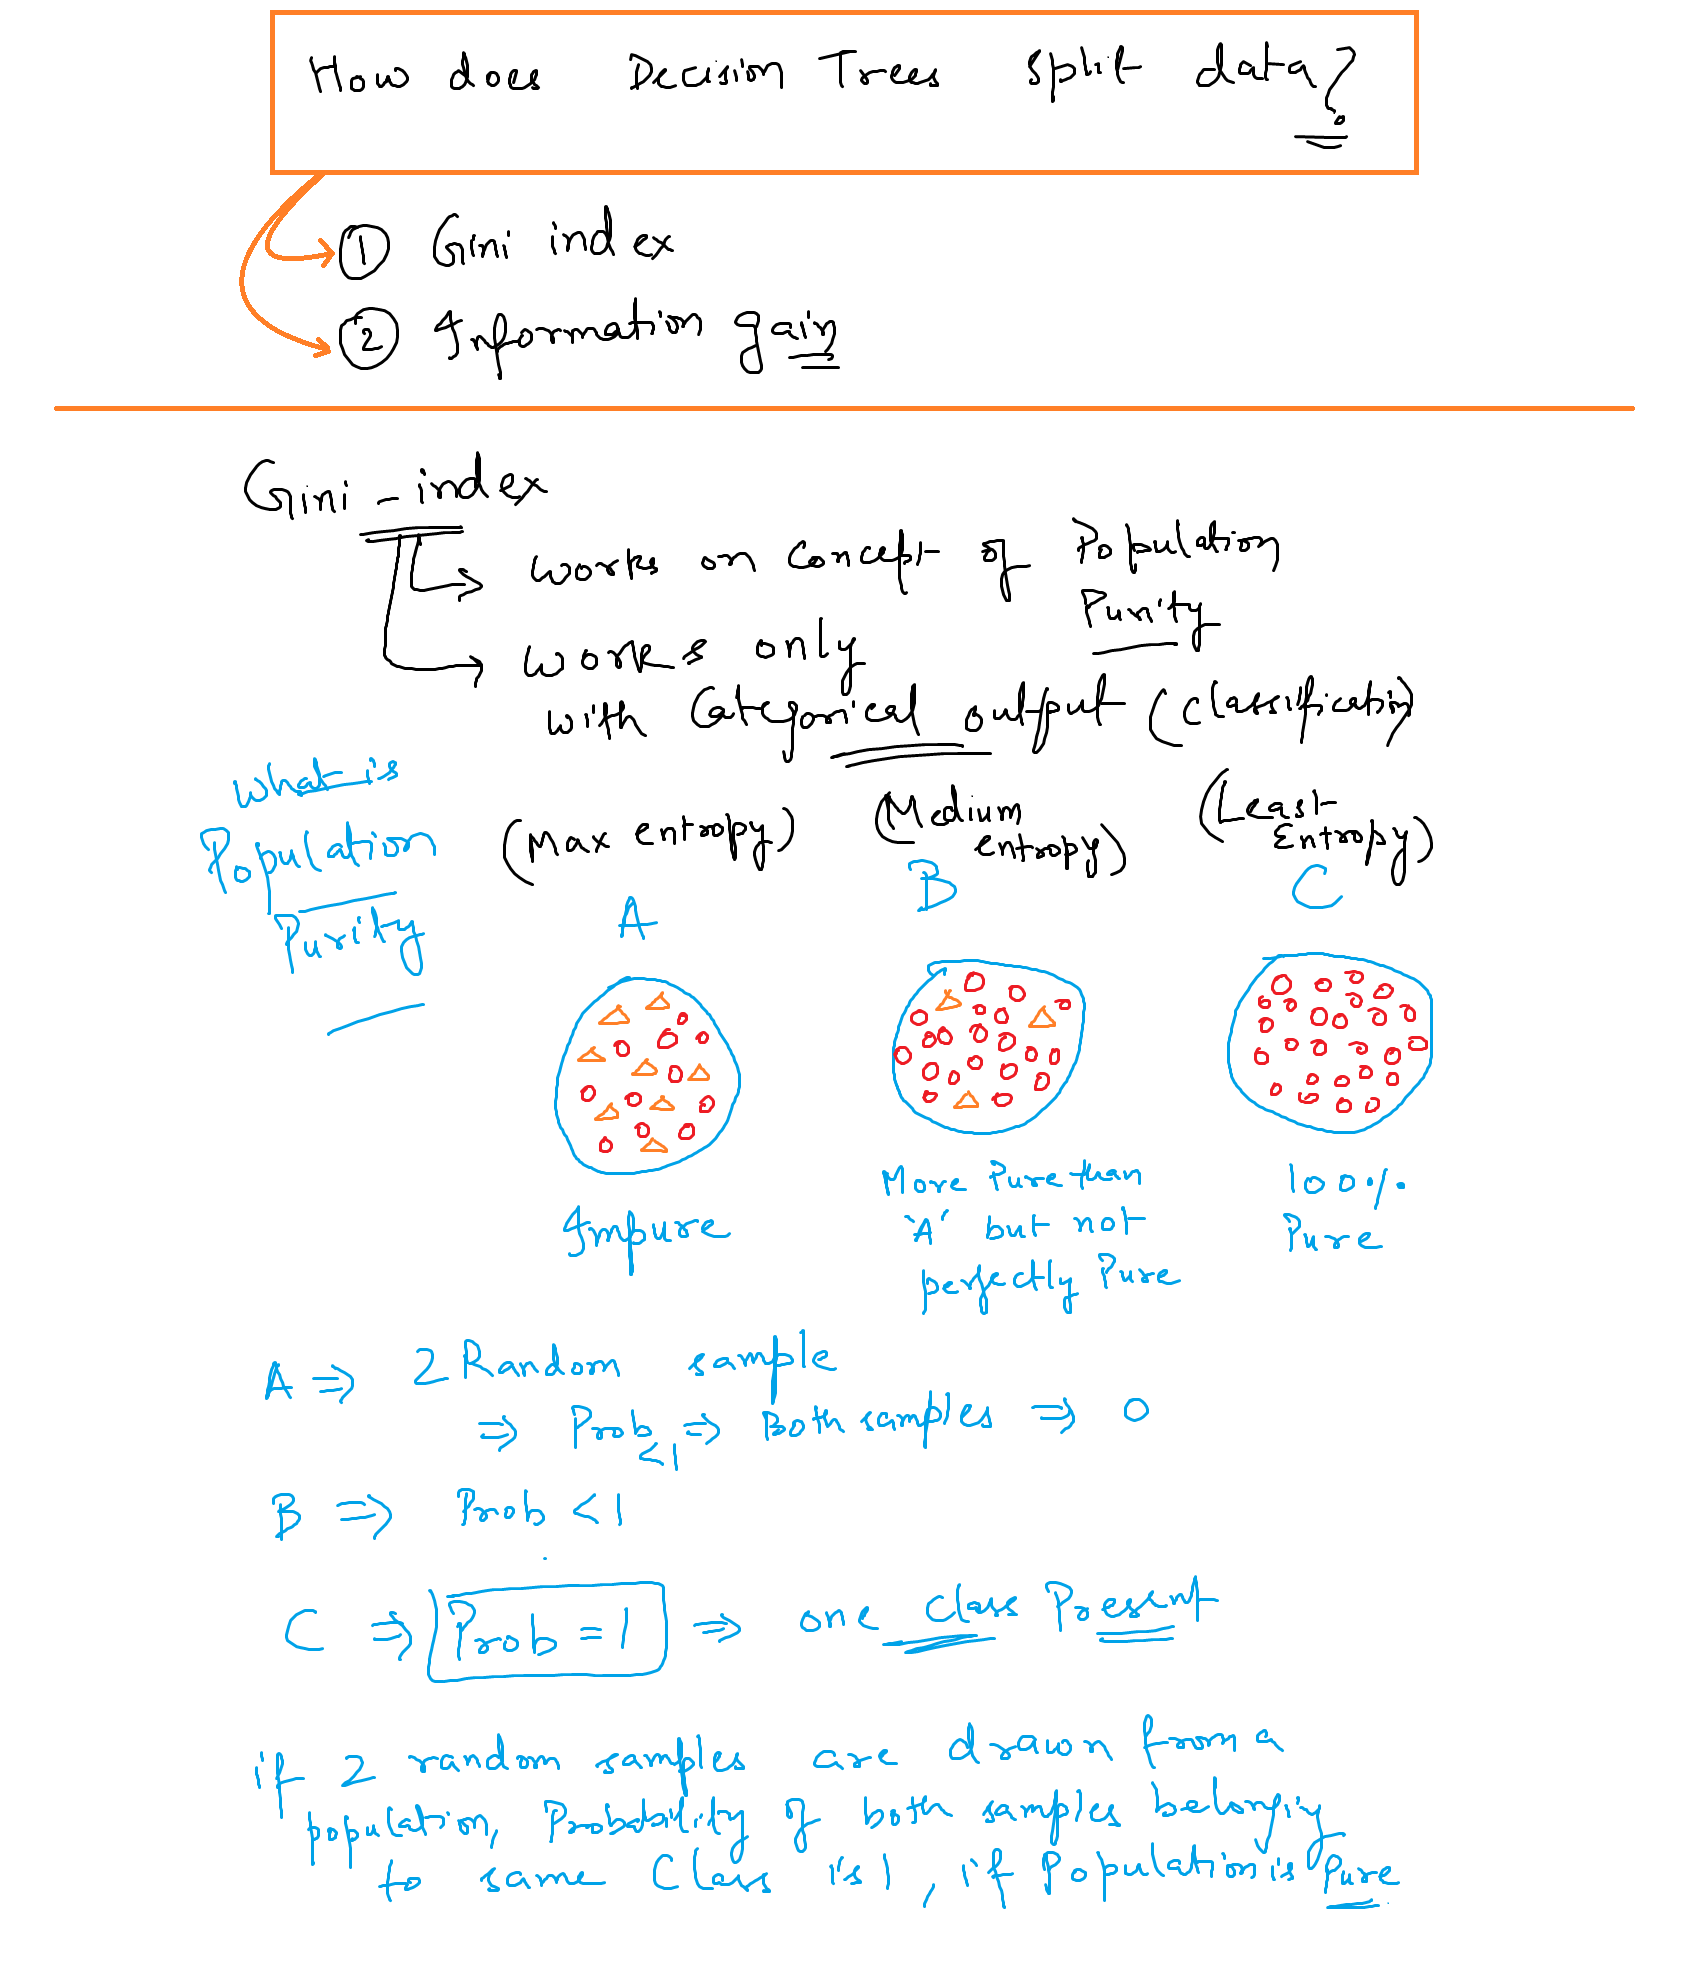 How does Decision Trees split data?
1 Gini index
2 Information gain
Gini - index
works on concept of Population
Purity
works only
with Categorical output (classification)
What is
Population
Purity
(Max entropy)
(Medium
entropy)
(Least
Entropy)
A
B
C
Impure
More Pure than
'A' but not
perfectly Pure
100%
Pure
A ⇒ 2 Random sample
⇒ Prob <1 ⇒ Both samples ⇒ 0
B ⇒ Prob < 1
C ⇒ Prob = 1 ⇒ one class Present
if 2 random samples are drawn from a
population, Probability of both samples belonging
to same Class is 1, if Population is Pure